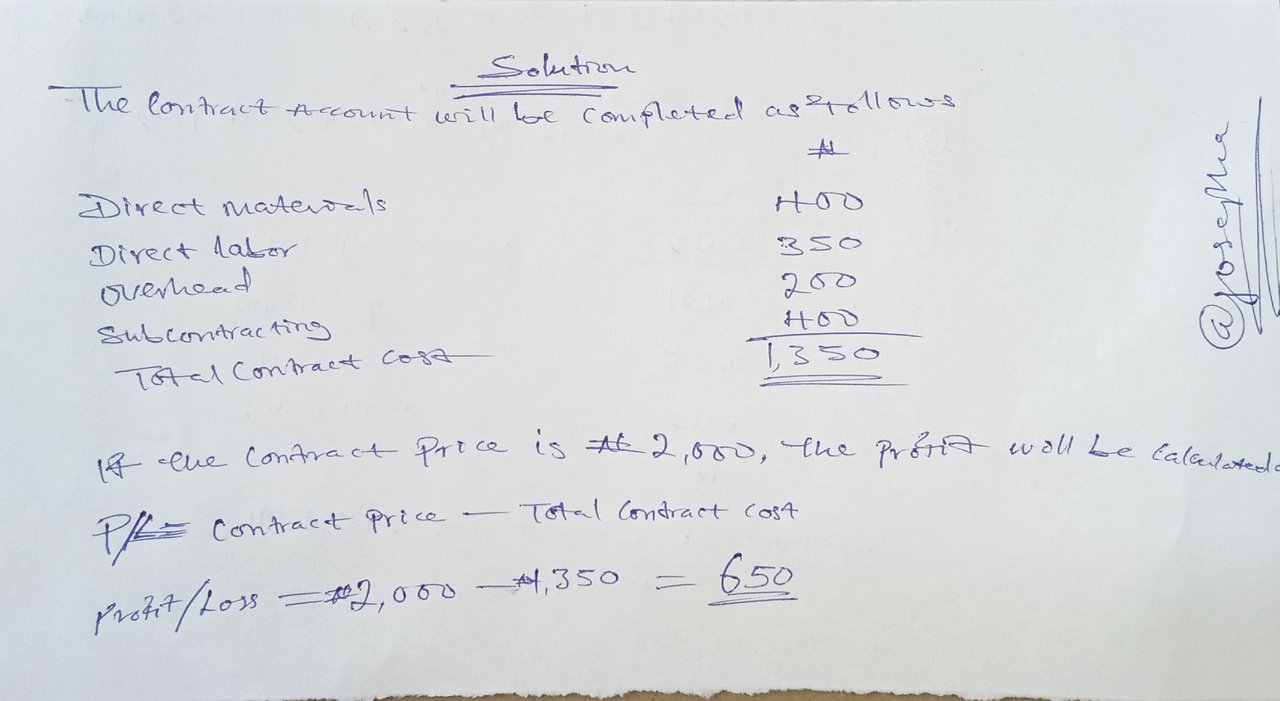 Solution
The Contract Account will be completed as follows
₦
Direct materials 400
Direct labor 350
Overhead 200
Subcontracting 400
Total Contract Cost 1,350
If the Contract Price is ₦2,000, the profit will be Calculated
P/L = Contract price — Total Contract cost
Profit/Loss = ₦2,000 — ₦1,350 = 650
@Josepha